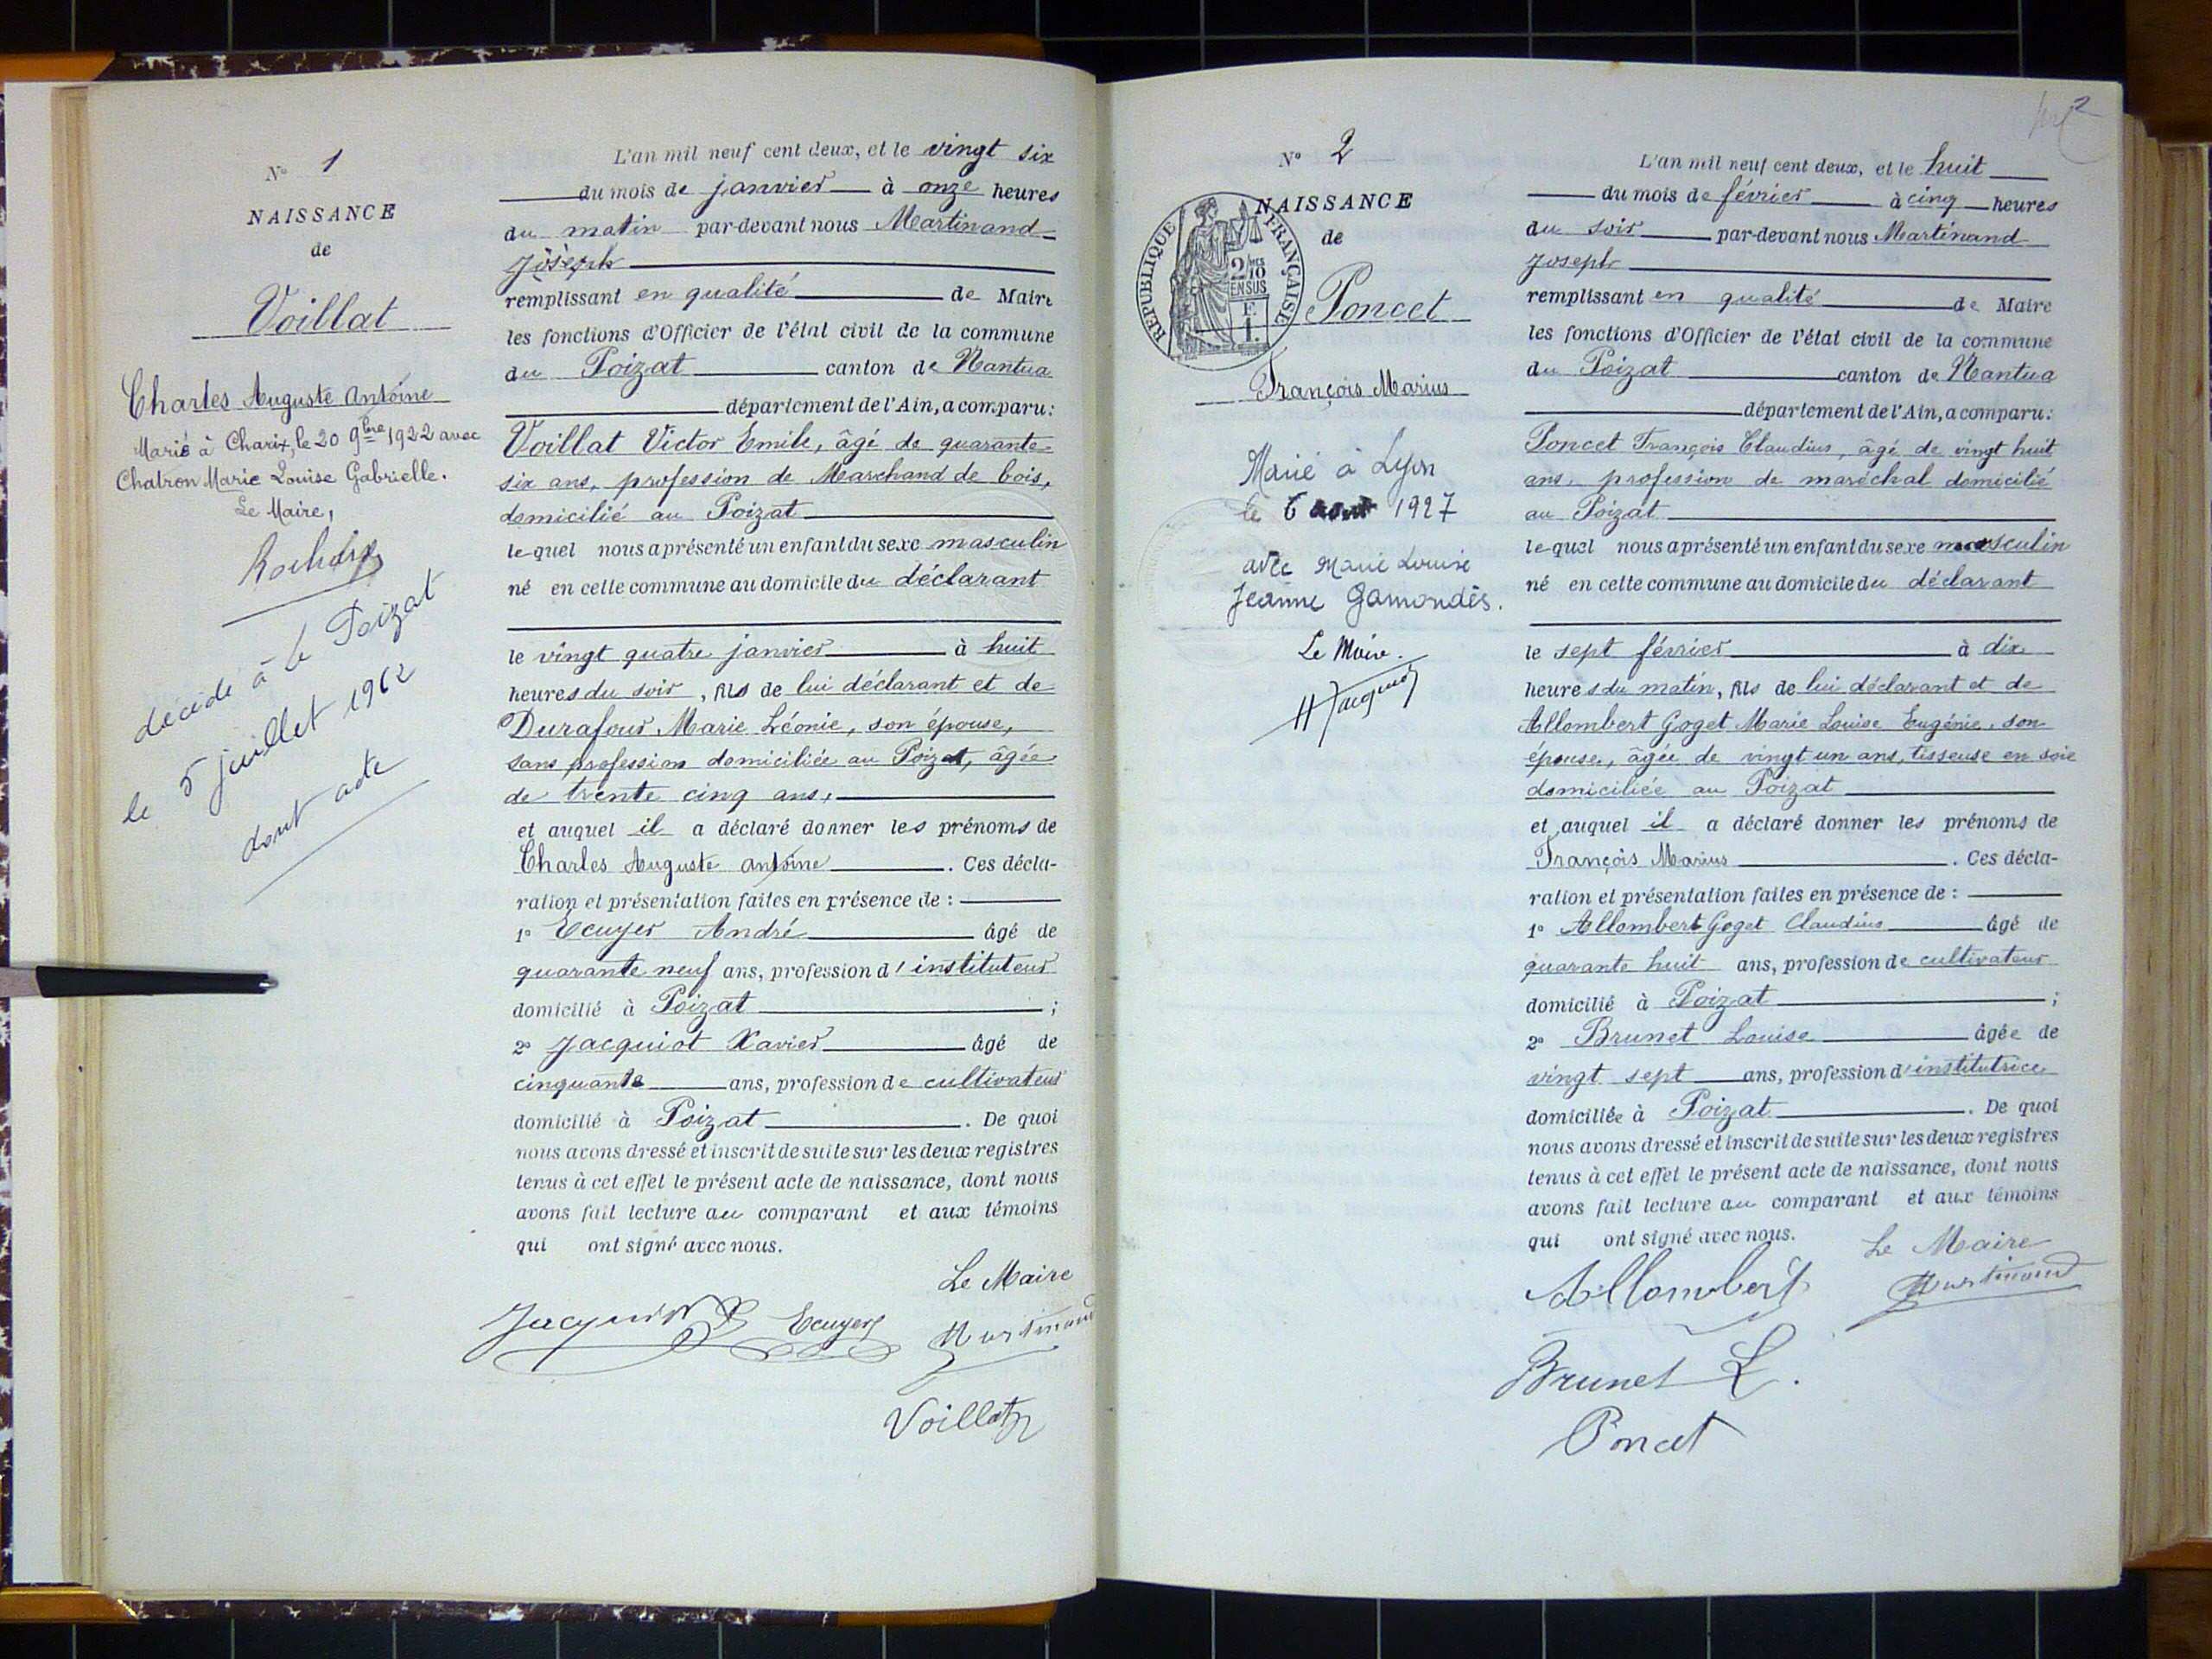 N° 1
NAISSANCE
de
Voillat
Charles Auguste Antoine
Marié à Charix, le 20 9bre 1922 avec
Chatron Marie Louise Gabrielle.
Le Maire,
décédé à le Poizat
le 5 juillet 1962
dont acte
L'an mil neuf cent deux, et le vingt six
du mois de janvier à onze heures
du matin par-devant nous Martinand
Joseph
remplissant en qualité de Maire
les fonctions d'Officier de l'état civil de la commune
du Poizat canton de Nantua
département de l'Ain, a comparu:
Voillat Victor Emile, âgé de quarante
six ans, profession de Marchand de bois,
domicilié au Poizat
lequel nous a présenté un enfant du sexe masculin
né en cette commune au domicile du déclarant
le vingt quatre janvier à huit
heures du soir, fils de lui déclarant et de
Durafour Marie Léonie, son épouse,
sans profession domiciliée au Poizat, âgée
de trente cinq ans,
et auquel il a déclaré donner les prénoms de
Charles Auguste Antoine. Ces décla-
ration et présentation faites en présence de :
1° Ecuyer André âgé de
quarante neuf ans, profession d'instituteur
domicilié à Poizat ;
2° Jacquiot Xavier âgé de
cinquante ans, profession de cultivateur
domicilié à Poizat. De quoi
nous avons dressé et inscrit de suite sur les deux registres
tenus à cet effet le présent acte de naissance, dont nous
avons fait lecture au comparant et aux témoins
qui ont signé avec nous.
Le Maire
Jacquiot Ecuyer Martinand
Voillat
2
N° 2
NAISSANCE
de
REPUBLIQUE FRANÇAISE
2/10 EN SUS
F.
1.
Poncet
François Marius
Marié à Lyon
le 6 août 1927
avec Marie Louise
Jeanne Gamondès.
Le Maire.
H Jacquiot
L'an mil neuf cent deux, et le huit
du mois de février à cinq heures
du soir par-devant nous Martinand
Joseph
remplissant en qualité de Maire
les fonctions d'Officier de l'état civil de la commune
du Poizat canton de Nantua
département de l'Ain, a comparu:
Poncet François Claudius, âgé de vingt huit
ans, profession de maréchal domicilié
au Poizat
lequel nous a présenté un enfant du sexe masculin
né en cette commune au domicile du déclarant
le sept février à dix
heures du matin, fils de lui déclarant et de
Allombert Goget Marie Louise Eugénie, son
épouse, âgée de vingt un ans, tisseuse en soie
domiciliée au Poizat
et auquel il a déclaré donner les prénoms de
François Marius. Ces décla-
ration et présentation faites en présence de :
1° Allombert Goget Claudius âgé de
quarante huit ans, profession de cultivateur
domicilié à Poizat ;
2° Brunet Louise âgée de
vingt sept ans, profession d'institutrice
domiciliée à Poizat. De quoi
nous avons dressé et inscrit de suite sur les deux registres
tenus à cet effet le présent acte de naissance, dont nous
avons fait lecture au comparant et aux témoins
qui ont signé avec nous.
Le Maire
Allombert Martinand
Brunet L.
Poncet